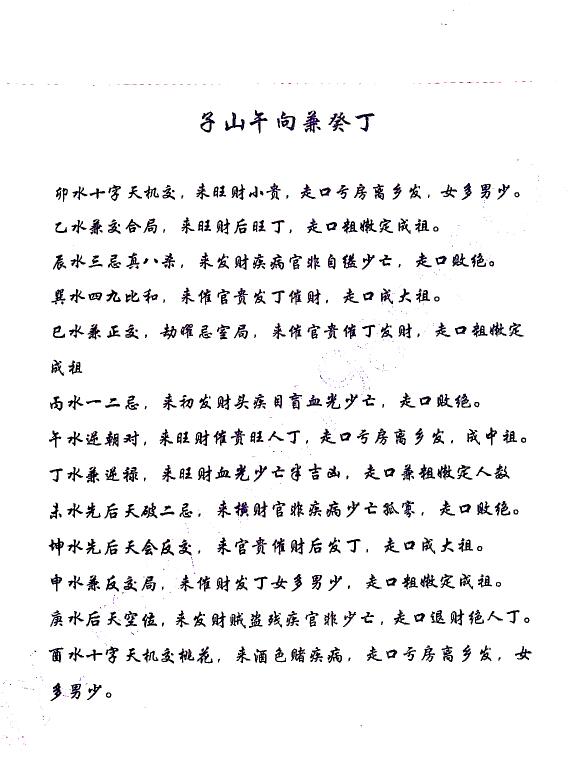 子山午向兼癸丁
卯水十字天机交，来旺财小贵，走口亏房离乡发，女多男少。
乙水兼交合局，来旺财后旺丁，走口粗嫩定成祖。
辰水三忌真八杀，来发财疾病官非自缢少亡，走口败绝。
巽水四九比和，来催官贵发丁催财，走口成大祖。
巳水兼正交，劫曜忌室局，来催官贵催丁发财，走口粗嫩定
成祖
丙水一二忌，来初发财头疾目盲血光少亡，走口败绝。
午水逆朝对，来旺财催贵旺人丁，走口亏房离乡发，成中祖。
丁水兼逆禄，来旺财血光少亡半吉凶，走口兼粗嫩定人数
未水先后天破二忌，来横财官非疾病少亡孤寡，走口败绝。
坤水先后天会反交，来官贵催财后发丁，走口成大祖。
申水兼反交局，来催财发丁女多男少，走口粗嫩定成祖。
庚水后天空位，来发财贼盗残疾官非少亡，走口退财绝人丁。
酉水十字天机交桃花，来酒色赌疾病，走口亏房离乡发，女
多男少。